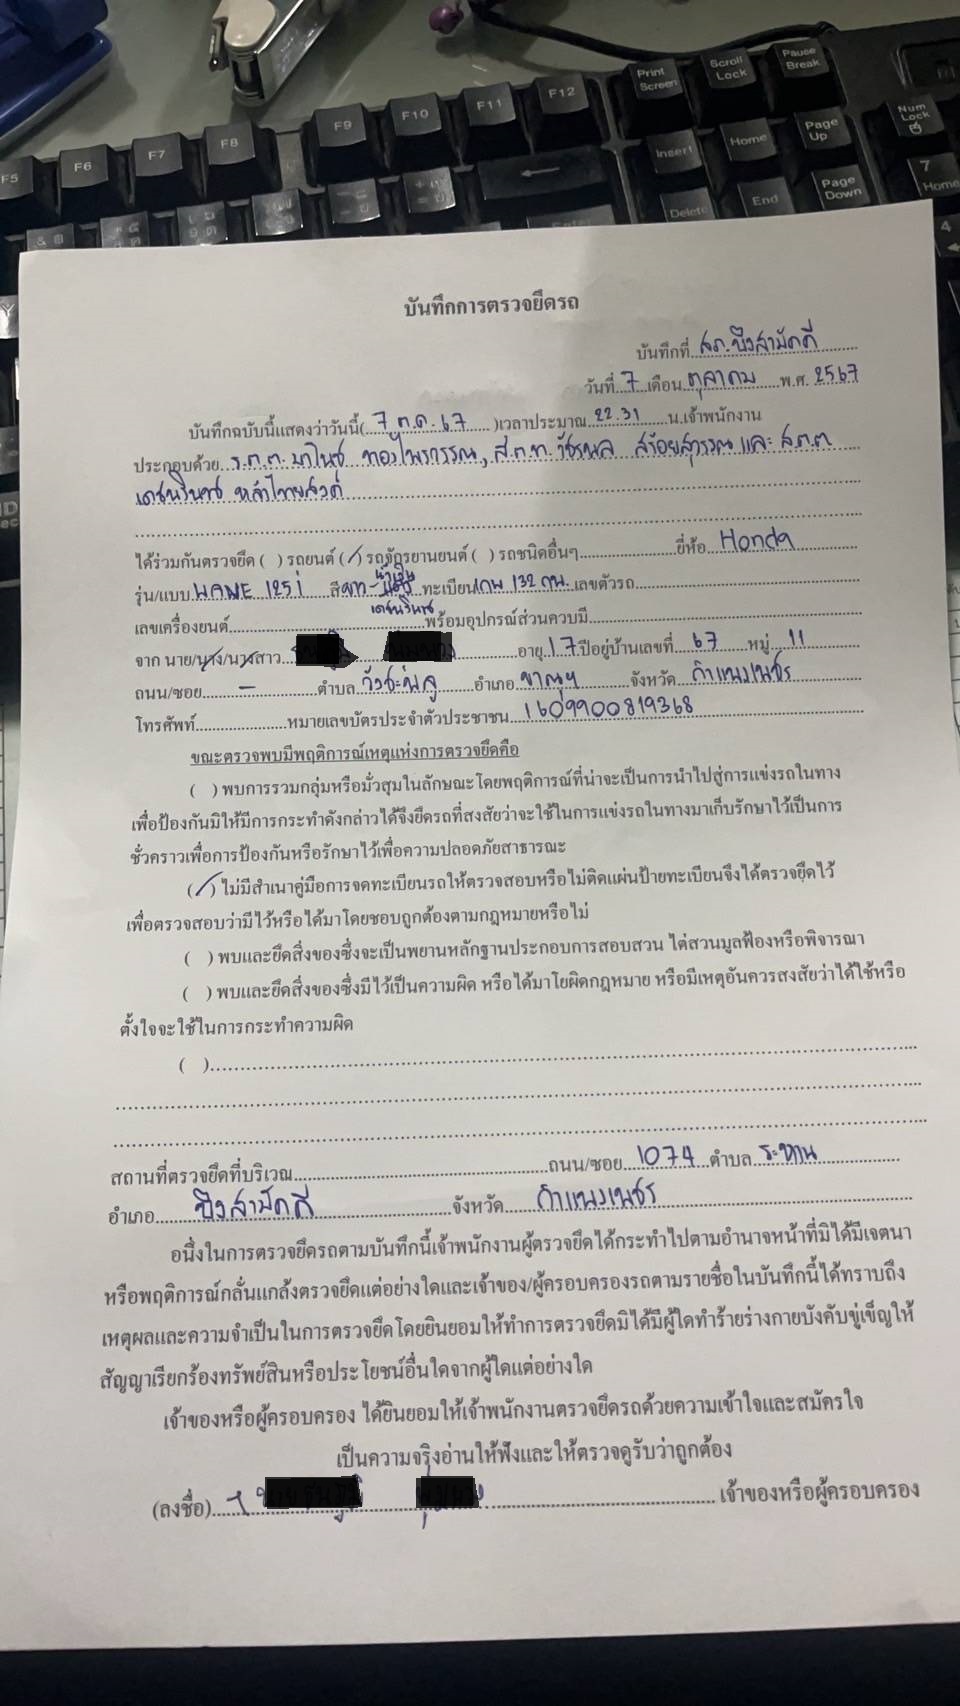 F5 F6 F7 F8 F9 F10 F11 F12 Print Screen Scroll Lock Pause Break
Insert Home Page Up Num Lock
Delete End Page Down 7 Home
4
บันทึกการตรวจยึดรถ
บันทึกที่ สภ.บึงสามัคคี
วันที่ 7 เดือน ตุลาคม พ.ศ. 2567
บันทึกฉบับนี้แสดงว่าวันนี้( 7 ต.ค. 67 )เวลาประมาณ 22.31 น.เจ้าพนักงาน
ประกอบด้วย ร.ต.ต. ทองไพรวรรณ, ส.ต.ท. วัชรพล สร้อยสุวรรณ และ ส.ต.ต.
เดชนรินทร์
ได้ร่วมกันตรวจยึด ( ) รถยนต์ (/) รถจักรยานยนต์ ( ) รถชนิดอื่นๆ ยี่ห้อ Honda
รุ่น/แบบ WAVE 125i สี ขาว-น้ำเงิน ทะเบียน 1กพ 132 กพ. เลขตัวรถ
เดชนรินทร์
เลขเครื่องยนต์ พร้อมอุปกรณ์ส่วนควบมี
จาก นาย/นาง/นางสาว อายุ 17 ปีอยู่บ้านเลขที่ 67 หมู่ 11
ถนน/ซอย - ตำบล วังชะพลู อำเภอ ขาณุฯ จังหวัด กำแพงเพชร
โทรศัพท์ หมายเลขบัตรประจำตัวประชาชน 1609900819368
ขณะตรวจพบมีพฤติการณ์เหตุแห่งการตรวจยึดคือ
( ) พบการรวมกลุ่มหรือมั่วสุมในลักษณะโดยพฤติการณ์ที่น่าจะเป็นการนำไปสู่การแข่งรถในทาง
เพื่อป้องกันมิให้มีการกระทำดังกล่าวได้จึงยึดรถที่สงสัยว่าจะใช้ในการแข่งรถในทางมาเก็บรักษาไว้เป็นการ
ชั่วคราวเพื่อการป้องกันหรือรักษาไว้เพื่อความปลอดภัยสาธารณะ
(/) ไม่มีสำเนาคู่มือการจดทะเบียนรถให้ตรวจสอบหรือไม่ติดแผ่นป้ายทะเบียนจึงได้ตรวจยึดไว้
เพื่อตรวจสอบว่ามีไว้หรือได้มาโดยชอบถูกต้องตามกฎหมายหรือไม่
( ) พบและยึดสิ่งของซึ่งจะเป็นพยานหลักฐานประกอบการสอบสวน ไต่สวนมูลฟ้องหรือพิจารณา
( ) พบและยึดสิ่งของซึ่งมีไว้เป็นความผิด หรือได้มาโยผิดกฎหมาย หรือมีเหตุอันควรสงสัยว่าได้ใช้หรือ
ตั้งใจจะใช้ในการกระทำความผิด
( )
สถานที่ตรวจยึดที่บริเวณ ถนน/ซอย 1074 ตำบล ระหาน
อำเภอ บึงสามัคคี จังหวัด กำแพงเพชร
อนึ่งในการตรวจยึดรถตามบันทึกนี้เจ้าพนักงานผู้ตรวจยึดได้กระทำไปตามอำนาจหน้าที่มิได้มีเจตนา
หรือพฤติการณ์กลั่นแกล้งตรวจยึดแต่อย่างใดและเจ้าของ/ผู้ครอบครองรถตามรายชื่อในบันทึกนี้ได้ทราบถึง
เหตุผลและความจำเป็นในการตรวจยึดโดยยินยอมให้ทำการตรวจยึดมิได้มีผู้ใดทำร้ายร่างกายบังคับขู่เข็ญให้
สัญญาเรียกร้องทรัพย์สินหรือประโยชน์อื่นใดจากผู้ใดแต่อย่างใด
เจ้าของหรือผู้ครอบครอง ได้ยินยอมให้เจ้าพนักงานตรวจยึดรถด้วยความเข้าใจและสมัครใจ
เป็นความจริงอ่านให้ฟังและให้ตรวจดูรับว่าถูกต้อง
(ลงชื่อ) เจ้าของหรือผู้ครอบครอง